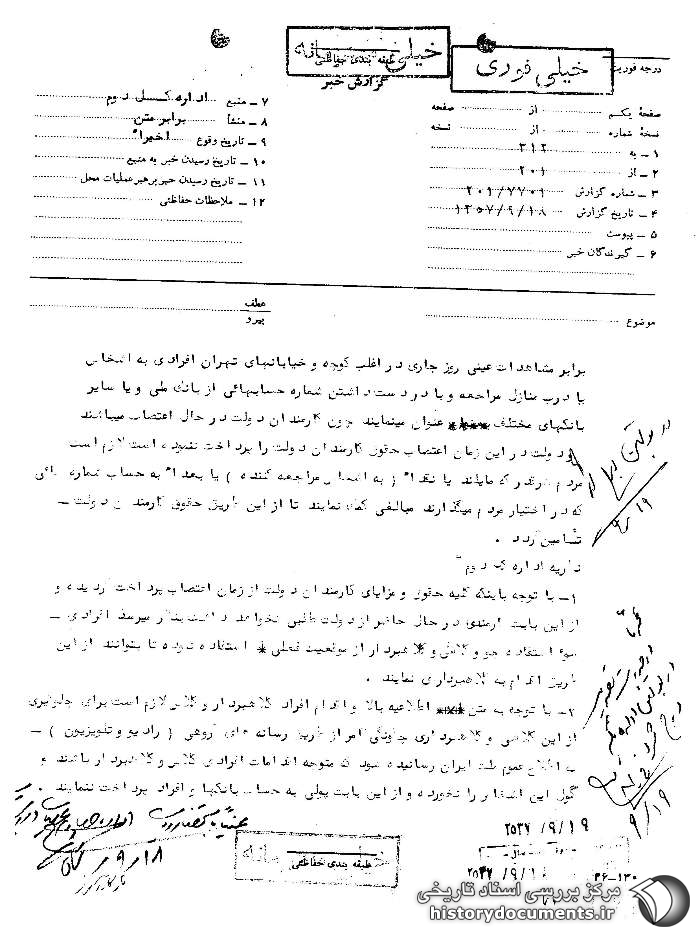 خیلی محرمانه
طبقه بندی حفاظتی
گزارش خبر
درجه فوریت
خیلی فوری
صفحه یکم از صفحه
نسخه شماره از نسخه
۱ ـ به ۳۱۲
۲ ـ از ۲۰۱
۳ ـ شماره گزارش ۲۰۱/۷۷۰۱
۴ ـ تاریخ گزارش ۱۳۵۷/۹/۱۸
۵ ـ پیوست
۶ ـ گیرندگان خبر
۷ ـ منبع اداره کل دوم
۸ ـ منشأ برابر متن
۹ ـ تاریخ وقوع اخیراً
۱۰ ـ تاریخ رسیدن خبر به منبع
۱۱ ـ تاریخ رسیدن خبر برهبر عملیات محل
۱۲ ـ ملاحظات حفاظتی
موضوع
عطف
پیرو
برابر مشاهدات عینی روز جاری در اغلب کوچه و خیابانهای تهران افرادی به اشخاص
یا درب منازل مراجعه و با در دست داشتن شماره حسابهائی از بانک ملی و یا سایر
بانکهای مختلف عنوان مینمایند چون کارمندان دولت در حال اعتصاب میباشند
و دولت در این زمان اعتصاب حقوق کارمندان دولت را پرداخت ننموده است لازم است
مردم هرقدر که مایلند یا نقداً ( به اشخاص مراجعه کننده ) یا بعداً به حساب شماره هائی
که در اختیار مردم میگذارند مبالغی کمک نمایند تا از این طریق حقوق کارمندان دولت ـ
تأمین گردد .
نظریه اداره کل دوم
۱ـ با توجه باینکه کلیه حقوق و مزایای کارمندان دولت از زمان اعتصاب پرداخت گردیده و
از این بابت کارمندی در حال حاضر از دولت طلبی نخواهد داشت بنظر میرسد افرادی ـ
سوء استفاده جو و کلاش و کلاهبردار از موقعیت فعلی استفاده نموده تا بتوانند از این
طریق اقدام به کلاهبرداری نمایند .
۲ـ با توجه به متن اطلاعیه بالا و اقدام افراد کلاهبردار و کلاش لازم است برای جلوگیری
از این کلاشی و کلاهبرداری چگونگی امر از طریق رسانه های گروهی ( رادیو و تلویزیون ) ـ
به اطلاع عموم ملت ایران رسانیده شود که متوجه اقدامات افرادی کلاش و کلاهبردار باشند و
گول این افراد را نخورده و از این بابت پولی به حساب بانکها و افراد پرداخت ننمایند .
در بولتن
۹/۱۹
۹/۱۹
۲۵۳۷/۹/۱۹
۹/۱۸
طبقه بندی حفاظتی
خیلی محرمانه
۲۵۳۷/۹/۱۸
۳۶-۱۳۰
مرکز بررسی اسناد تاریخی
historydocuments.ir